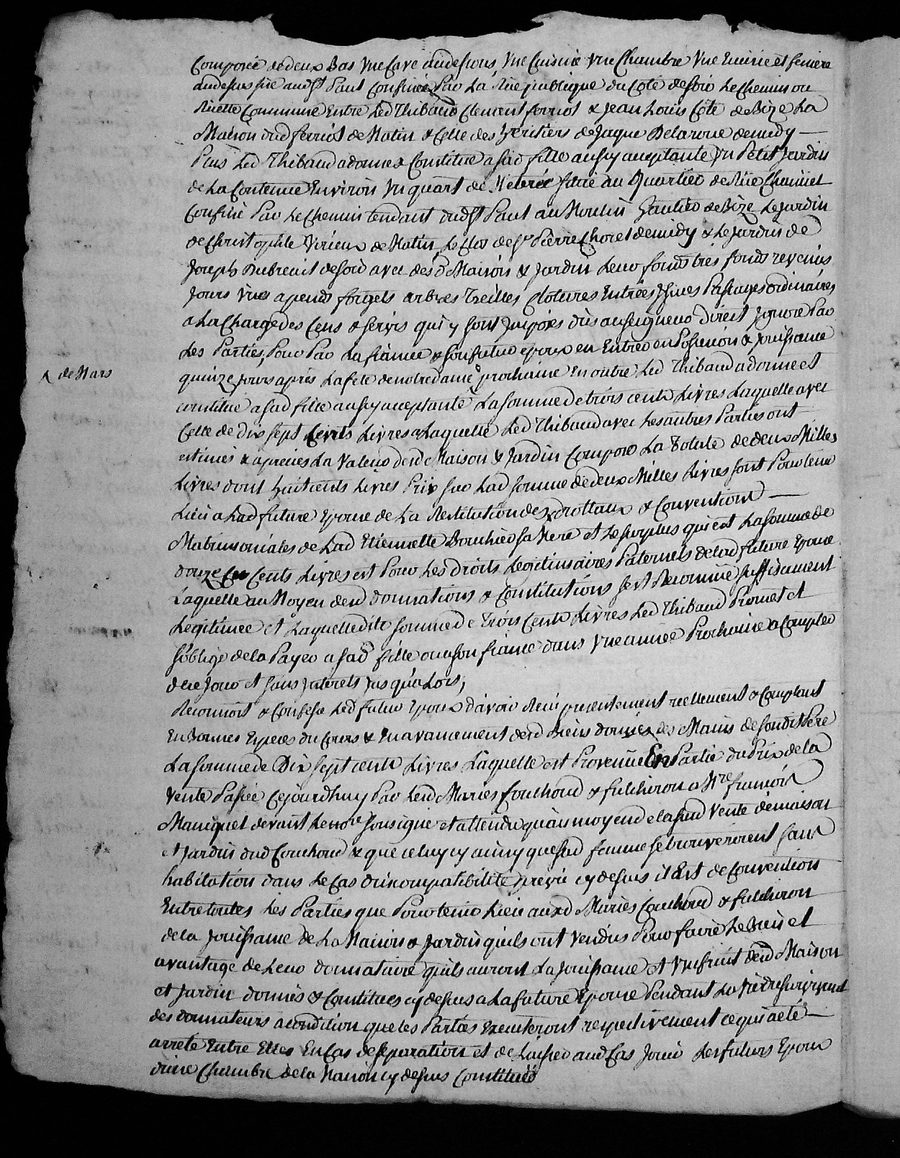 Composée dedeux Bas Une Cave audessous Une Cuisine Une Chambre Une Ecurie et feniere
audessus sise aud.t Paul Confinée Par La Rüe publique du Coté desoir Le Chemin ou
Ruette Commune Entre Led Thibaud Clement ferriot & Jean Louis Coté de Bize La
Maison dud ferriot de Matin & Celle des heritiers de Jaque Delaroue demidy —
Plus Led Thibaud adonné & Constitué asad fille aussy aceptante Un Petit Jardin
de La Contenue Environ Un quart de Meterée Situé au Quartier de
Confiné Par Le Chemin tendant dud.t Paul au Moulin Gaultier de Bize Le Jardin
de Christophle de Matin Le Clos de S.r Pierre Choret demidy & Le Jardin de
Joseph Dubreuil desoir avec desd Maison & Jardin Leur fonds tres fonds revenus
Jours Vües apends forgets arbres treilles Clotures Entrées Issües Passages ordinaires
a La Charge des Cens & servis qui y sont Imposés dûs auseigneur direct Ignoré Par
Les Parties, Pour Par La fiancée & son futur epoux en Entrer en Possession & Jouissance
quinze Jours après La fete de notre dame ^ prochaine En outre Led Thibaud a donné et
^ de Mars
constitué a sad fille aussy aceptante La somme de trois cents Livres Laquelle avec
Celle de Dix sept Cents Livres a Laquelle Led Thibaud avec Les autres Parties ont
estimés & apreciés La Valeur desd Maison & Jardin Compose La Totale de deux Milles
Livres dont huit cents Livres Prix sur Lad somme de deux Milles Livres sont Pour tenir
Lieu a Lad future Epouse de La Restitution des drottaux & Conventions —
Matrimoniales de Lad Etiennette Bouchier sa Mere et Le surplus qui est La somme de
douze Cents Livres est Pour Les Droits Legitimaires Paternels de Lad future Epouse
Laquelle au Moyen desd donnations & Constitutions sest Reconnüe suffisament
Legitimée et Laquelle dite somme de trois Cents Livres Led Thibaud Promet et
s'oblige de la Payer a sad fille ou a son fiancé dans Une année Prochaine a Compter
de ce Jour et sans Interets Jusqu'a Lors;
Reconnoit & Confesse Led futur Epoux d'avoir Reçu presentement reellement & Comptant
En Bonnes Especes du Cours & en avancement desd Biens donnés des Mains de son dit Pere
La somme de Dix sept cents Livres Laquelle est Provenüe En Partie du Prix de La
Vente Passée Cejourdhuy Par Lesd Maries Couchoud & fulchiron a M.re françois
Maniquet devant Le no.re soussigné et attendu qu'au moyen de Lasud Vente de maison
et Jardin dud Couchoud & que celuy cy ainsy que sad femme se trouveroient sans
habitation dans Le Cas d'incompatibilité prevü cy dessus il Est de Convention
Entre toutes Les Parties que Pour tenir Lieu auxd Maries Couchoud & fulchiron
de la Jouissance de La Maison & Jardin qu'ils ont Vendus Pour faire Le Bien et
avantage de Leur donnataire qu'ils auront La Jouissance et Usufruit desd Maison
et Jardin donnés & Constitués cy dessus a La future Epouse Pendant La Vie du survivant
des donnateurs a condition que les Parties Executeront respectivement ce qui a été —
arreté Entre Elles En Cas de separation et de Laisser aud Cas Jouir Lesfuturs Epoux
d'une Chambre de la Maison cy dessus Constituée